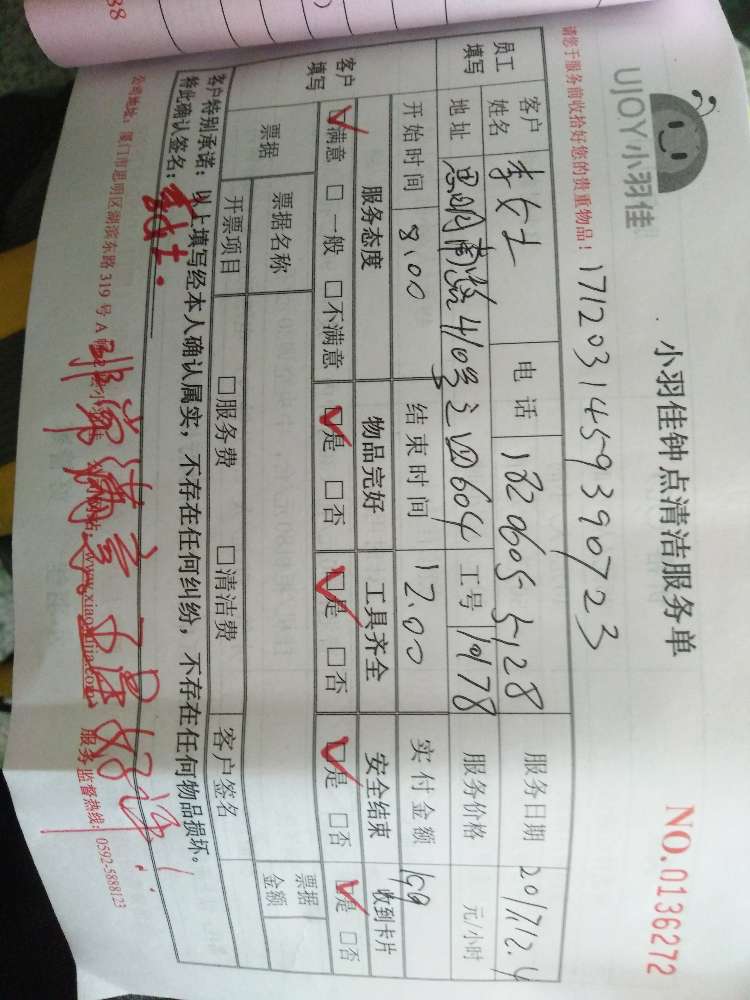 UJOY小羽佳
小羽佳钟点清洁服务单
NO.0136272
请您于服务前收拾好您的贵重物品！
1712031459390723
员工填写
客户姓名 李女士 电话 18206055128 服务日期 2017.12.4
地址 思明南路410号之四604 工号 10178 服务价格 元/小时
开始时间 8.00 结束时间 12.00 实付金额 199
客户填写
服务态度 物品完好 工具齐全 安全结束 收到卡片
☑满意 □一般 □不满意 ☑是 □否 ☑是 □否 ☑是 □否 ☑是 □否
票据 票据名称 票据金额
开票项目 □服务费 □清洁费 客户签名
客户特别承诺：以上填写经本人确认属实，不存在任何纠纷，不存在任何物品损坏。
特此确认签名：
公司地址：厦门市思明区湖滨东路319号A 服务监督热线：0592-5888123
非常满意
88